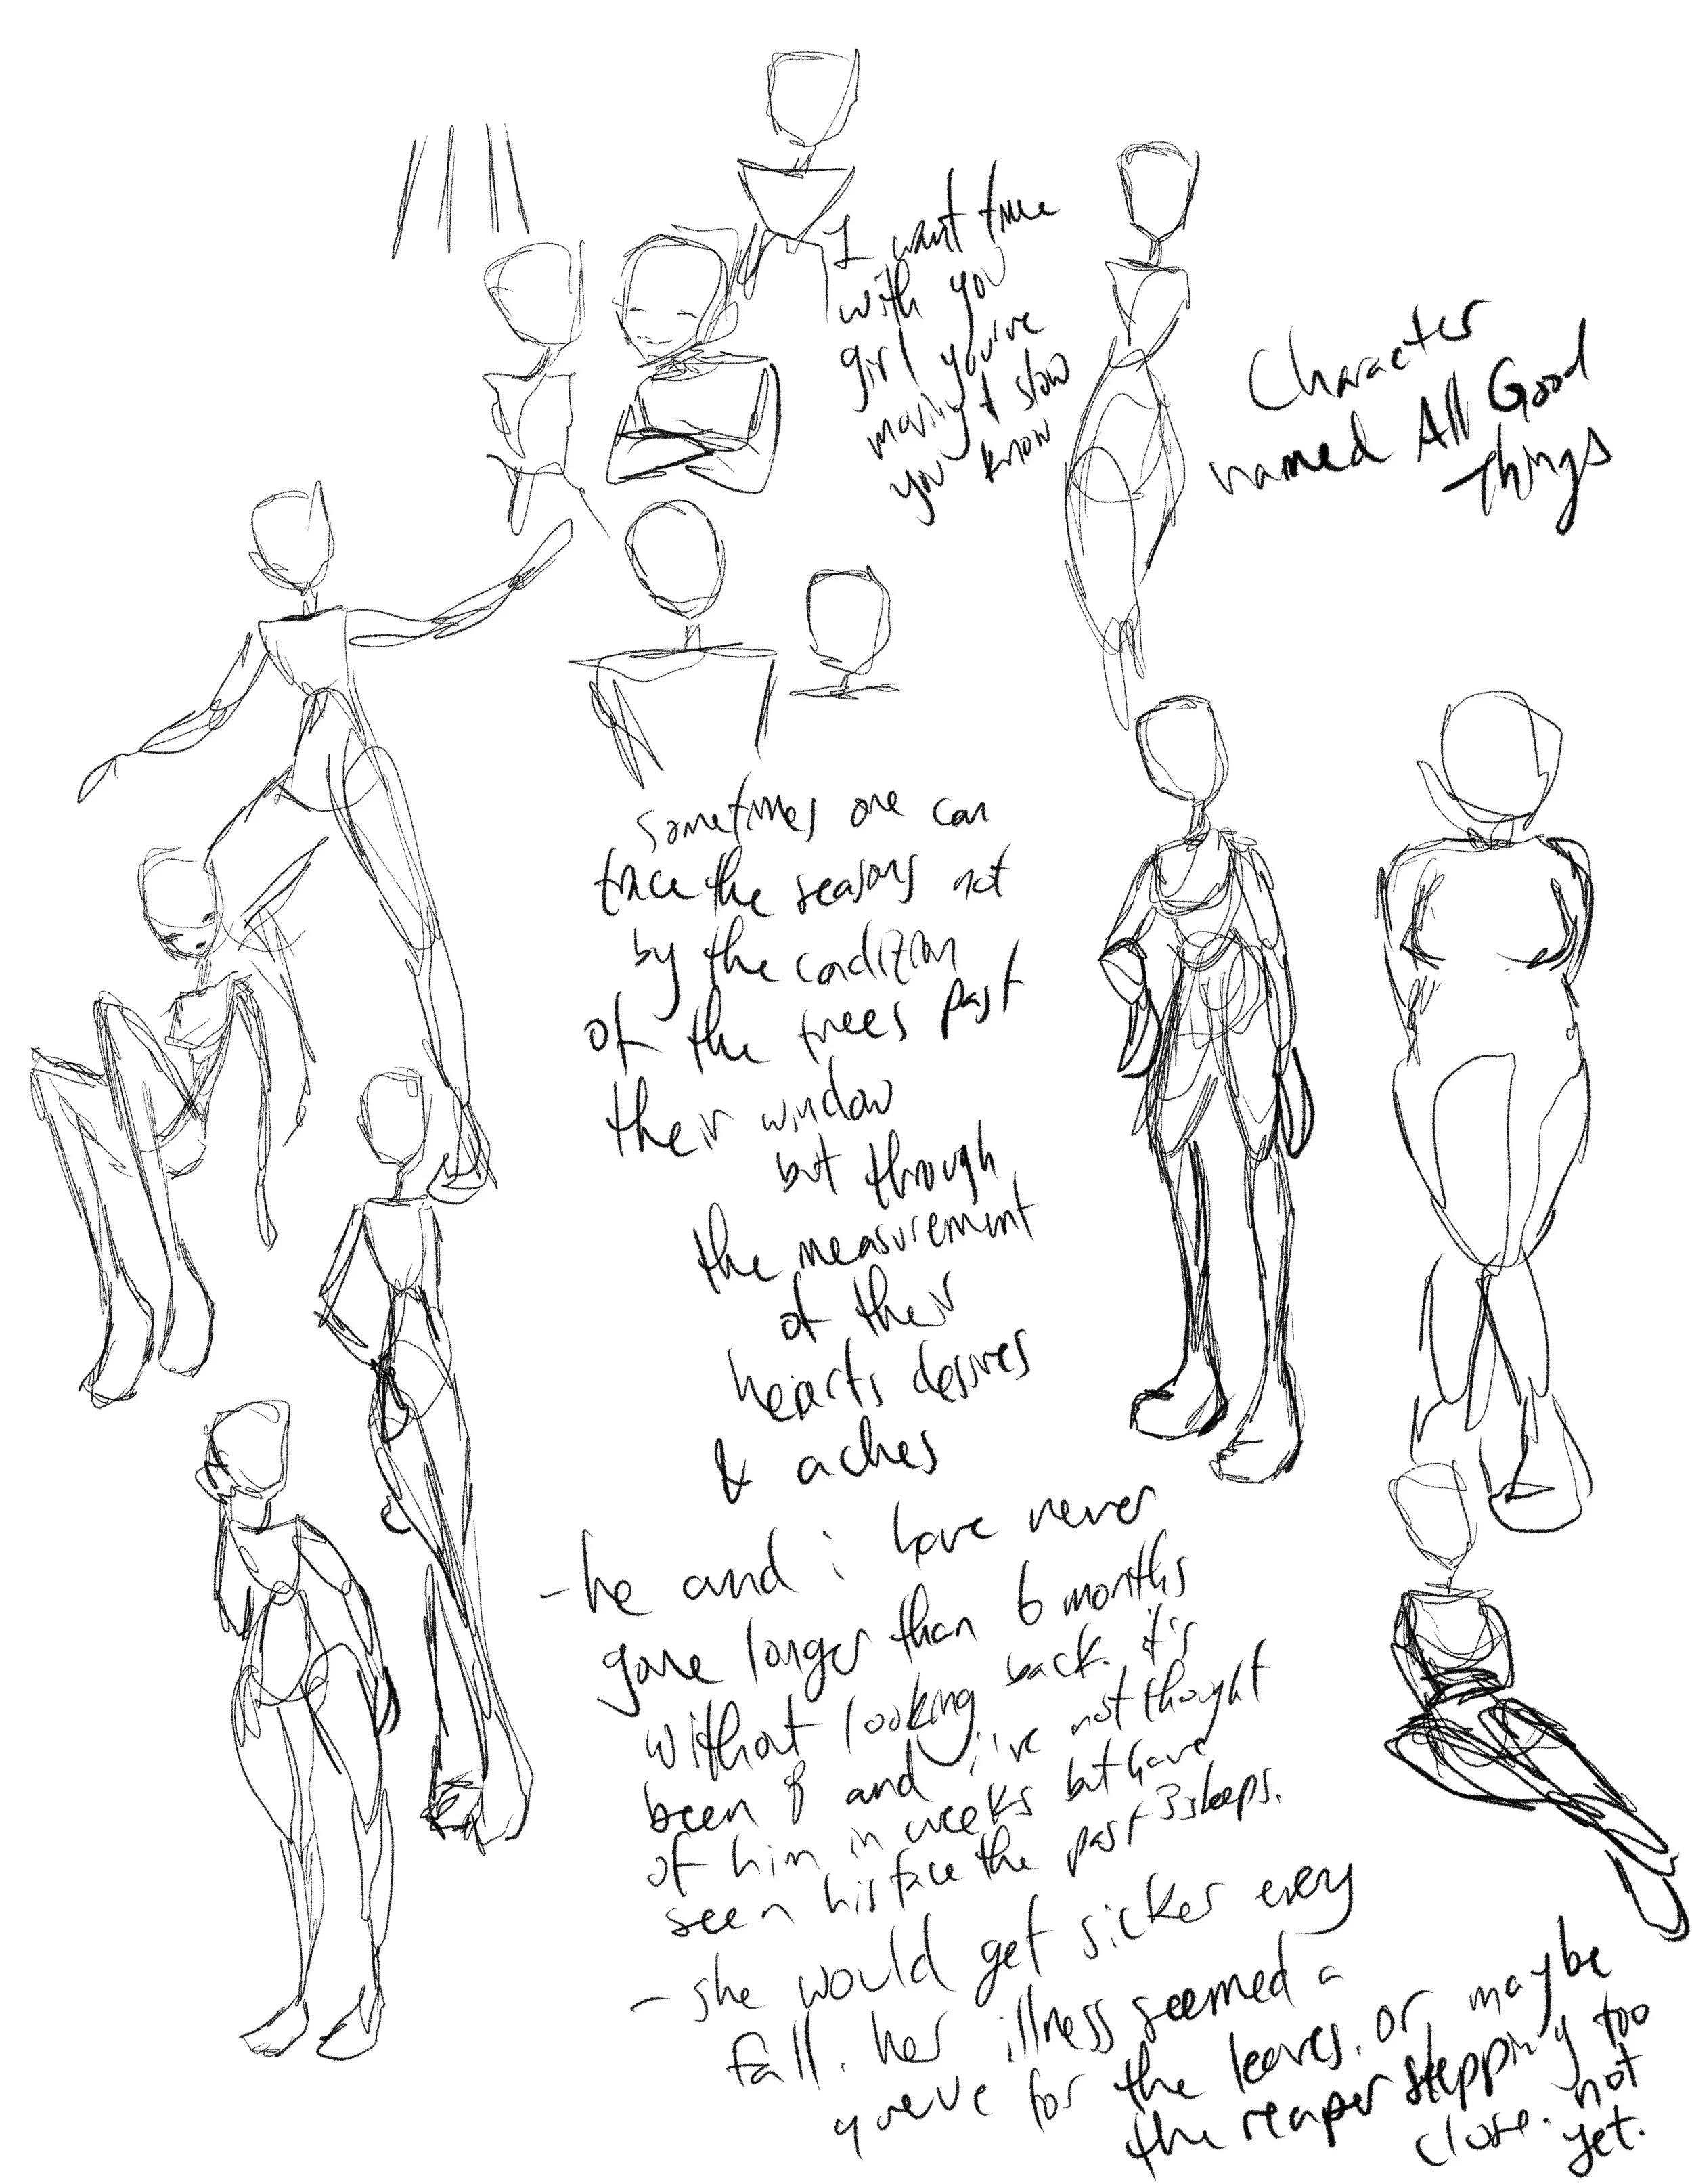 I want time
with you
girl you're
making it slow
you know
Character
named All Good
Things
sometimes one can
trace the seasons not
by the condition
of the trees past
their window
but through
the measurement
of their
hearts desires
& aches
- he and i have never
gone longer than 6 months
without looking back. it's
been 8 and i've not thought
of him in weeks but have
seen his face the past 3 sleeps.
- she would get sicker every
fall. her illness seemed a
queue for the leaves. or maybe
the reaper stepping too
close. not
yet.